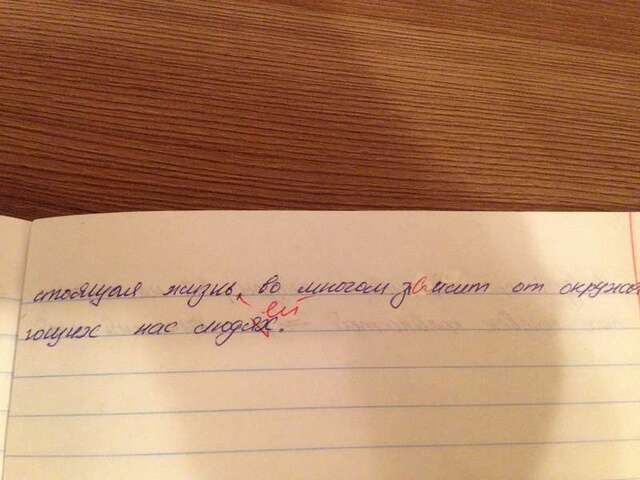 стоящая жизнь, во многом зависит от окружа
ющих нас людей.